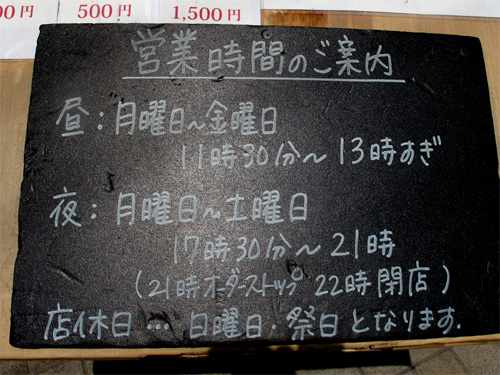 00円 500円 1,500円
営業時間のご案内
昼：月曜日〜金曜日
11時30分〜13時すぎ
夜：月曜日〜土曜日
17時30分〜21時
(21時オーダーストップ 22時閉店)
店休日…日曜日・祭日となります.